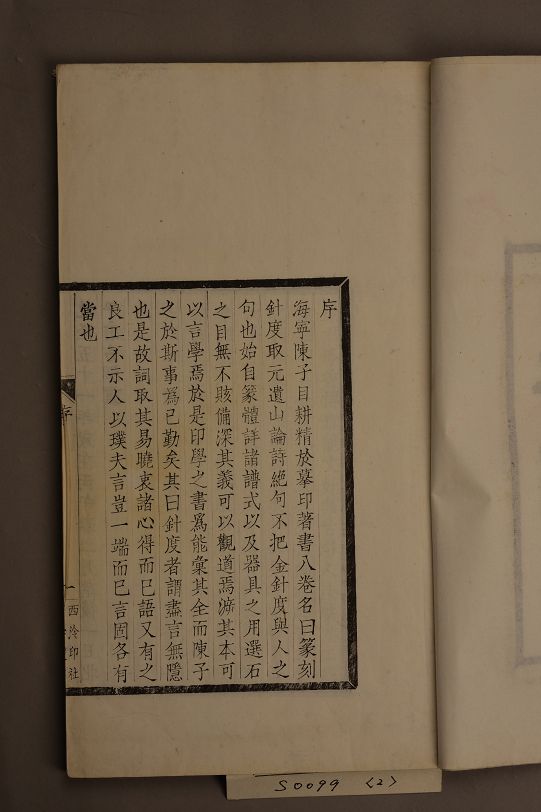 序
海寧陳子目耕精於摹印著書八卷名曰篆刻
針度取元遺山論詩絕句不把金針度與人之
句也始自篆體詳諸譜式以及器具之用選石
之目無不賅備深其義可以觀道焉泝其本可
以言學焉於是印學之書爲能彙其全而陳子
之於斯事爲已勤矣其曰針度者謂盡言無隱
也是故詞取其易曉衷諸心得而已語又有之
良工不示人以璞夫言豈一端而已言固各有
當也
序
一
西泠印社
S0099 (2)